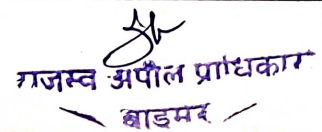 राजस्व अपील प्राधिकार
बाड़मेर